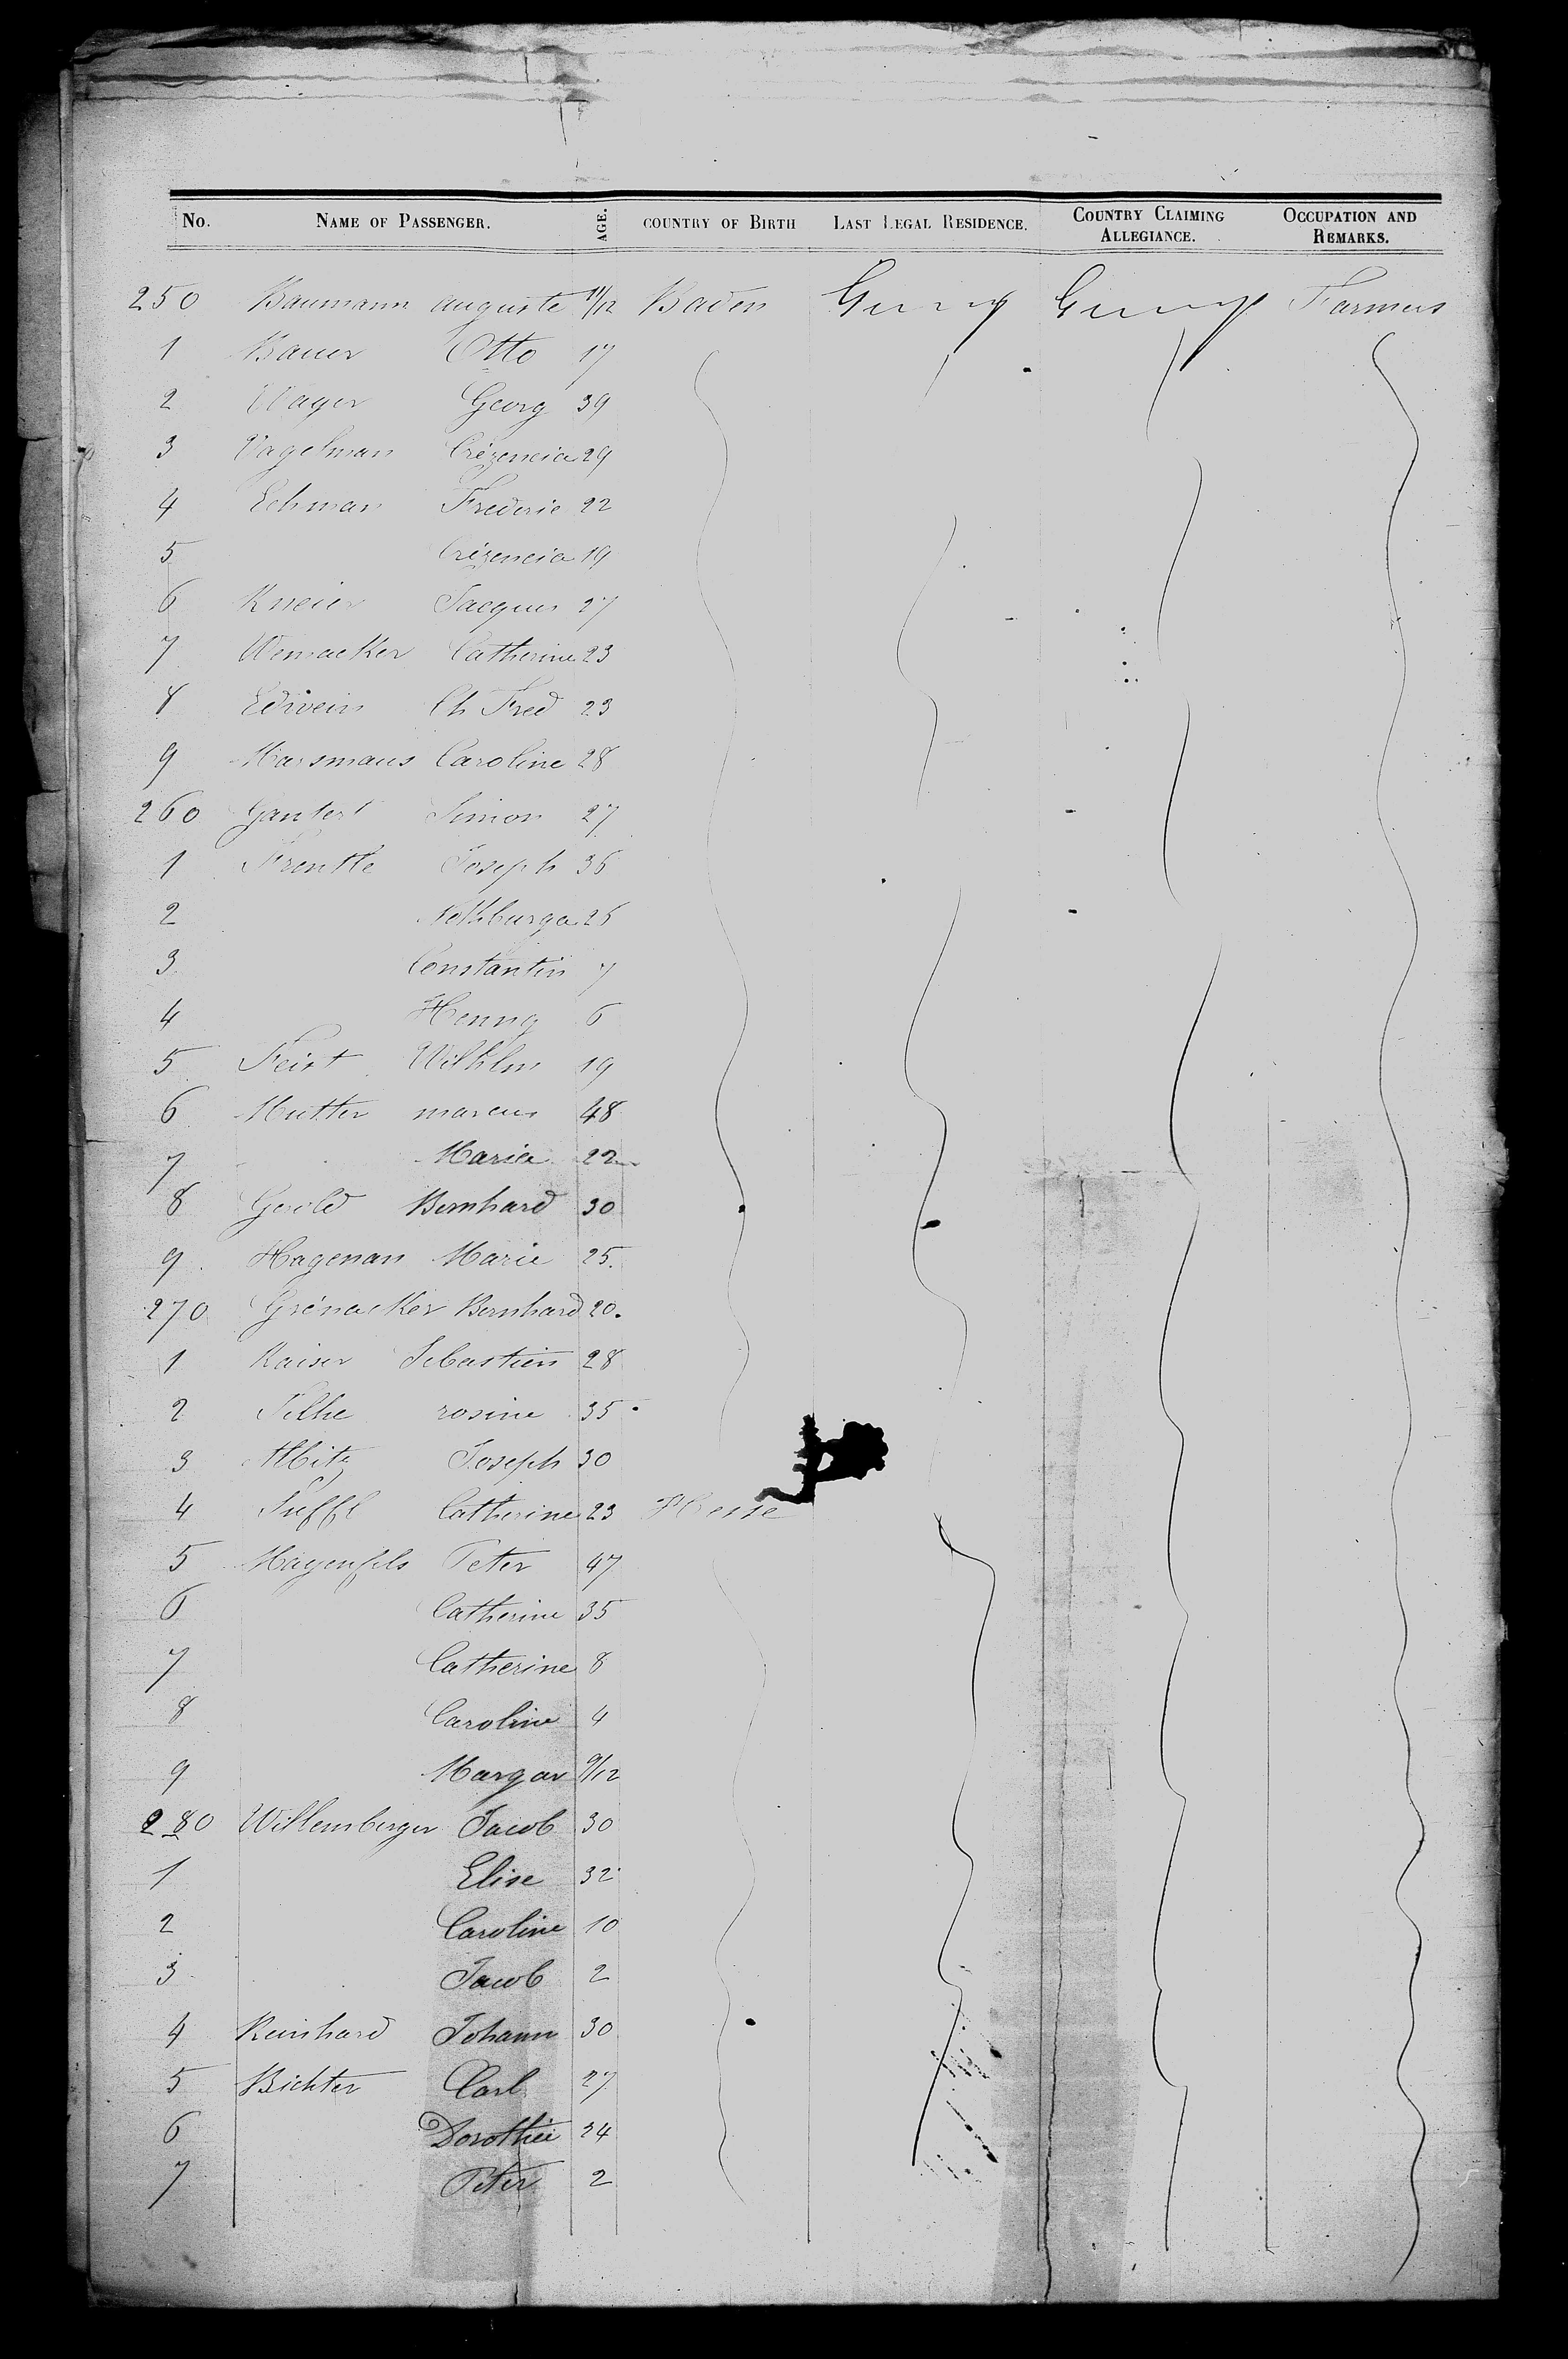 No. NAME OF PASSENGER. AGE. COUNTRY OF BIRTH LAST LEGAL RESIDENCE. COUNTRY CLAIMING ALLEGIANCE. OCCUPATION AND REMARKS.
250 Baumann auguste 11/12 Baden Germy Germy Farmers
1 Bauer Otto 17
2 Georg 39
3 Vagelman Crizencia 29
4 Echman Frederic 22
5 Crizencia 19
6 Kneier Jacques 27
7 Wemacker Catherine 23
8 Edwein Ch Fred 23
9 Marsmaus Caroline 28
260 Gantert Simon 27
1 Joseph 36
2 Nothburga 26
3 Constantin 7
4 Henny 6
5 Feist Wilhlm 19
6 Mutter marcus 48
7 Maria 22
8 Gerold Bernhard 30
9 Hagenan Marie 25
270 Grénacker Bernhard 20
1 Kaiser Sebastien 28
2 rosine 35
3 Albitz Joseph 30
4 Catherine 23 Hesse
5 Mayenfels Peter 47
6 Catherine 35
7 Catherine 8
8 Caroline 4
9 Margar 9/12
280 Willemberger Jacob 30
1 Elise 32
2 Caroline 10
3 Jacob 2
4 Reinhard Johann 30
5 Bichter Carl 27
6 Dorothée 24
7 Peter 2